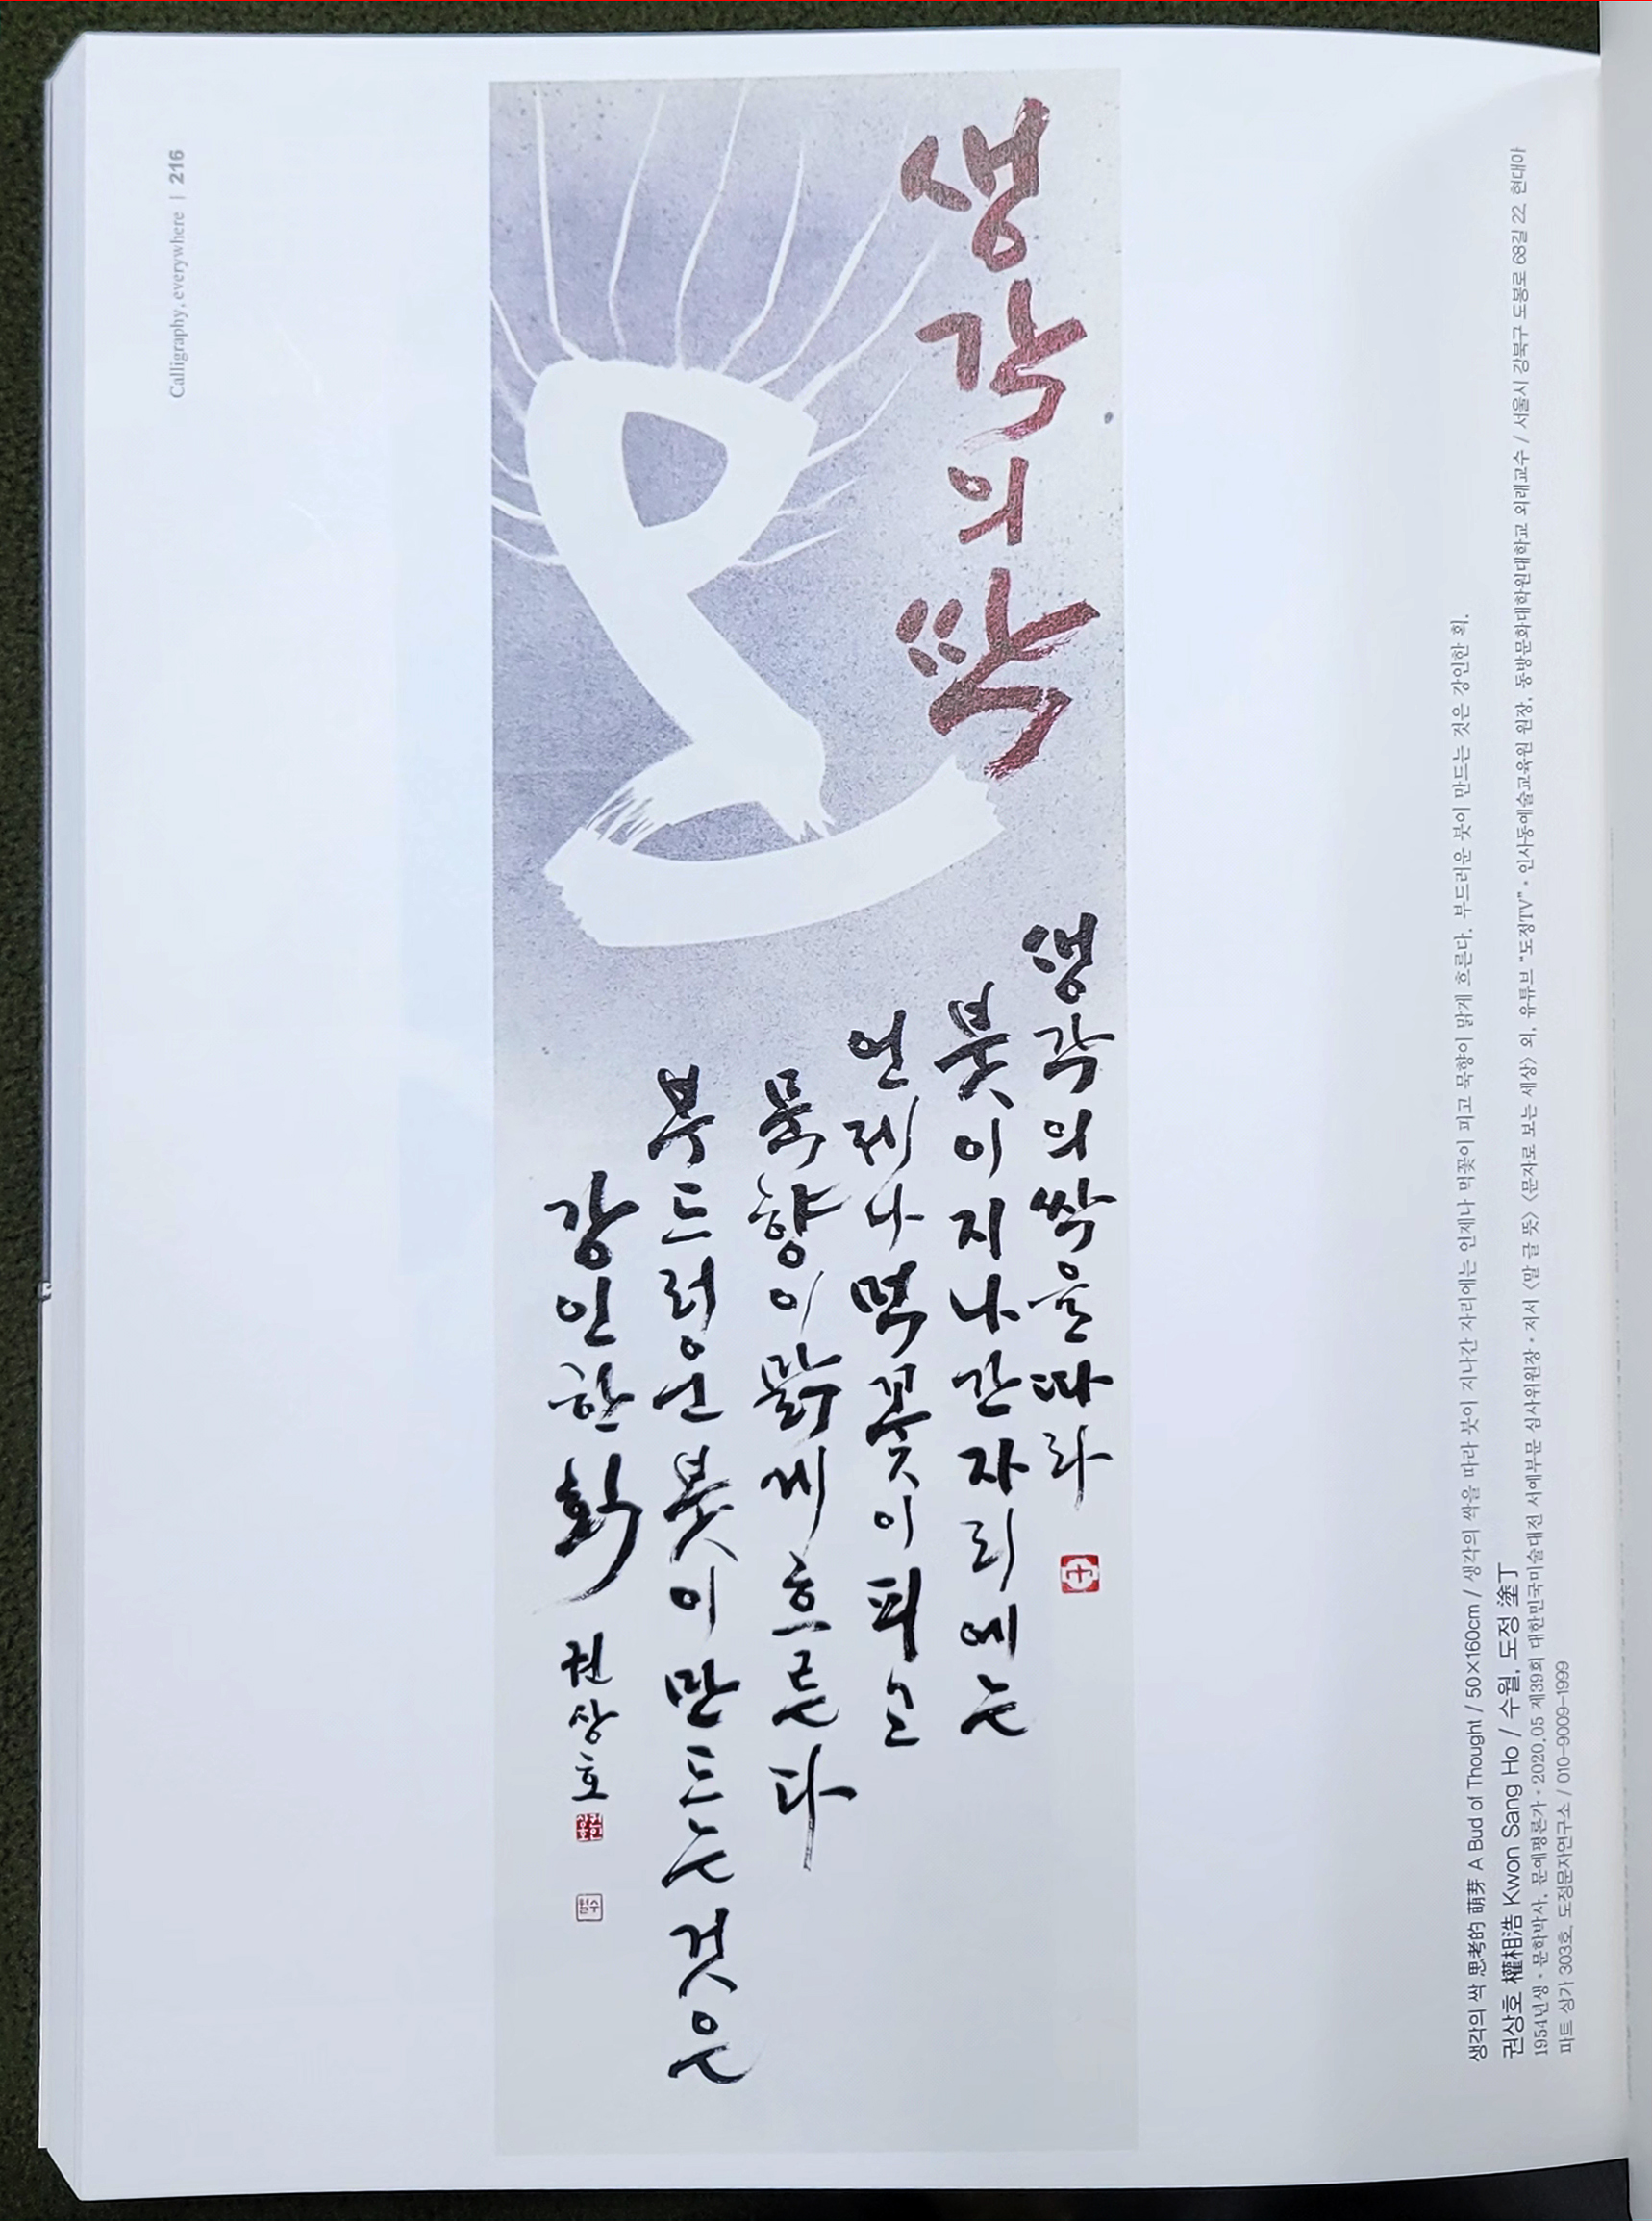 Calligraphy, everywhere | 216
생각의 싹
생각의 싹을 따라
붓이 지나간 자리에는
언제나 먹꽃이 피고
묵향이 맑게 흐른다
부드러운 붓이 만드는 것은
강인한 획
권상호
생각의 싹 思考的 萌芽 A Bud of Thought / 50×160cm / 생각의 싹을 따라 붓이 지나간 자리에는 언제나 먹꽃이 피고 묵향이 맑게 흐른다. 부드러운 붓이 만드는 것은 강인한 획.
권상호 權相浩 Kwon Sang Ho / 수월, 도정 塗丁
1954년생 • 문학박사, 문예평론가 • 2020.05 제39회 대한민국미술대전 서예부문 심사위원장 • 저서 <말 글 뜻> <문자로 보는 세상> 외, 유튜브 “도정TV” • 인사동예술교육원 원장, 동방문화대학원대학교 외래교수 / 서울시 강북구 도봉로 68길 22, 현대아
파트 상가 303호, 도정문자연구소 / 010-9009-1999